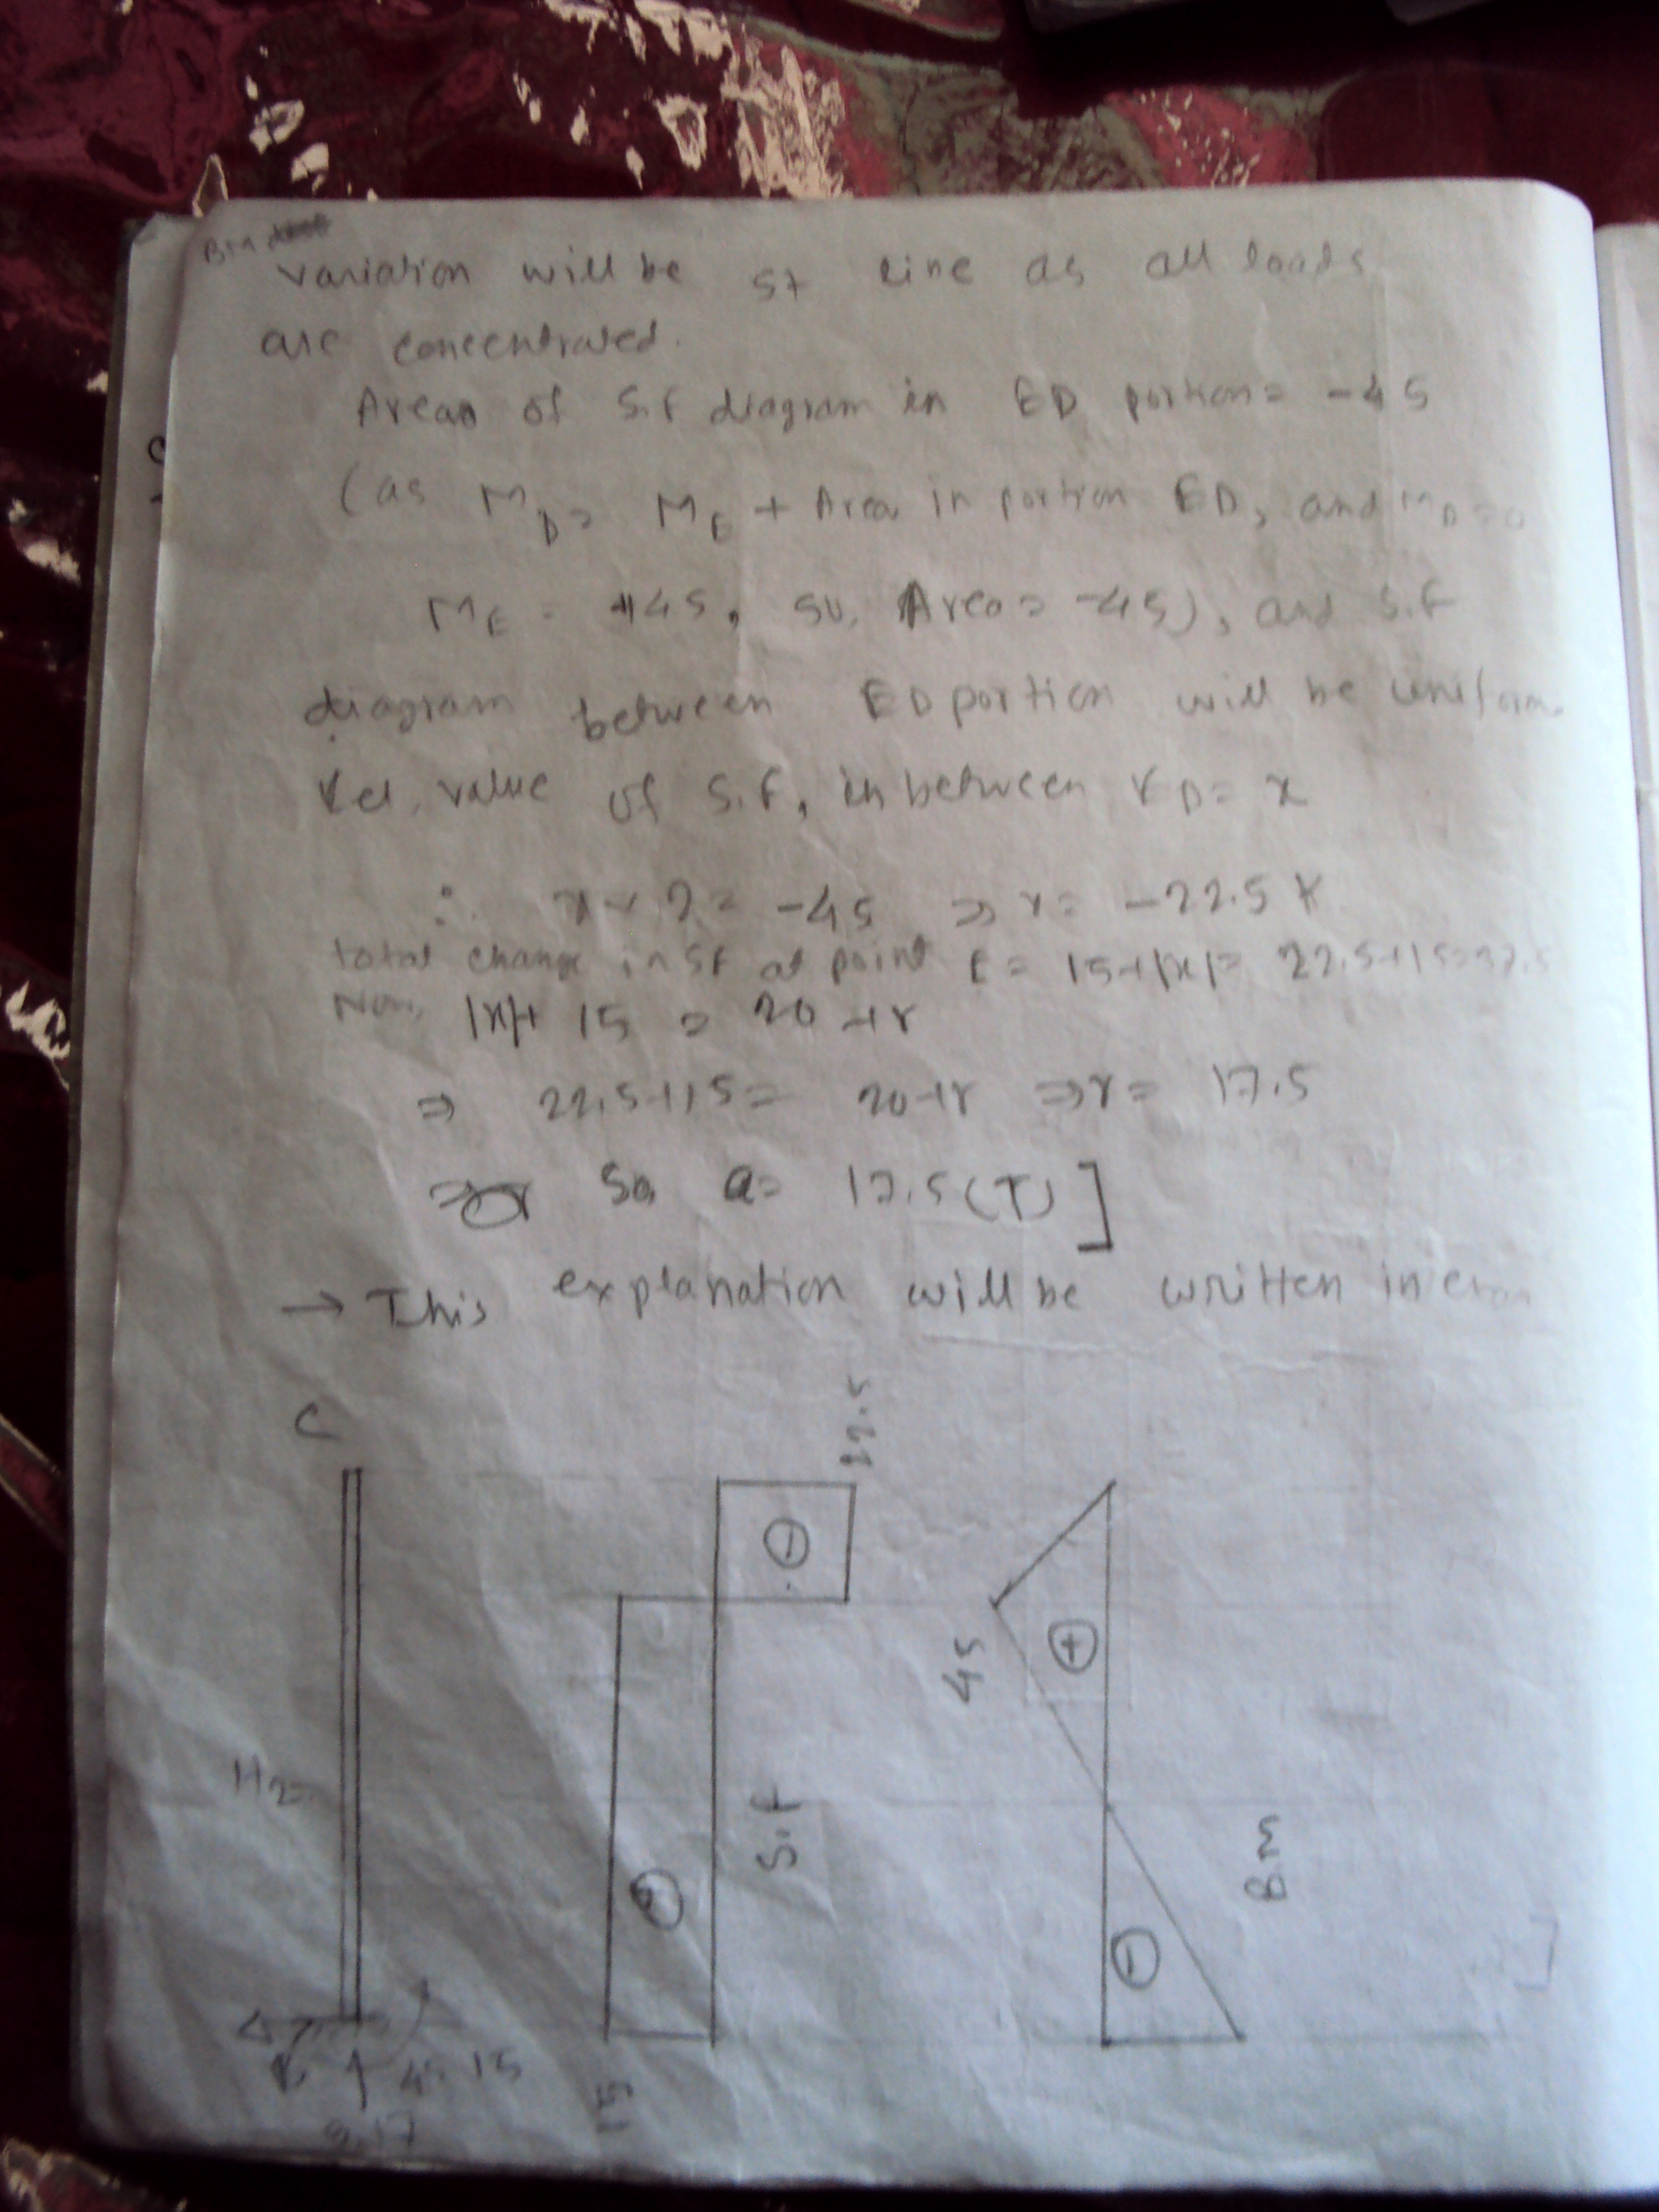 BM
variation will be st line as all loads
are concentrated.
Area of S.F diagram in ED portion = -45
(as M_D = M_E + Area in portion ED, and M_D = 0
M_E = +45, so, Area = -45), and S.F
diagram between ED portion will be uniform
Let, value of S.F, in between ED = x
∴ x × 2 = -45 ⇒ x = -22.5 K
total change in SF at point E = 15+|x| = 22.5+15=37.5
Now, |x|+ 15 = 20 + r
⇒ 22.5+15 = 20+r ⇒ r = 17.5
So a = 17.5 (T) ]
→ This explanation will be written in exam
C
22.5
-
+
45
H2
S.F
B.M
-
45
15
9.17
15
]